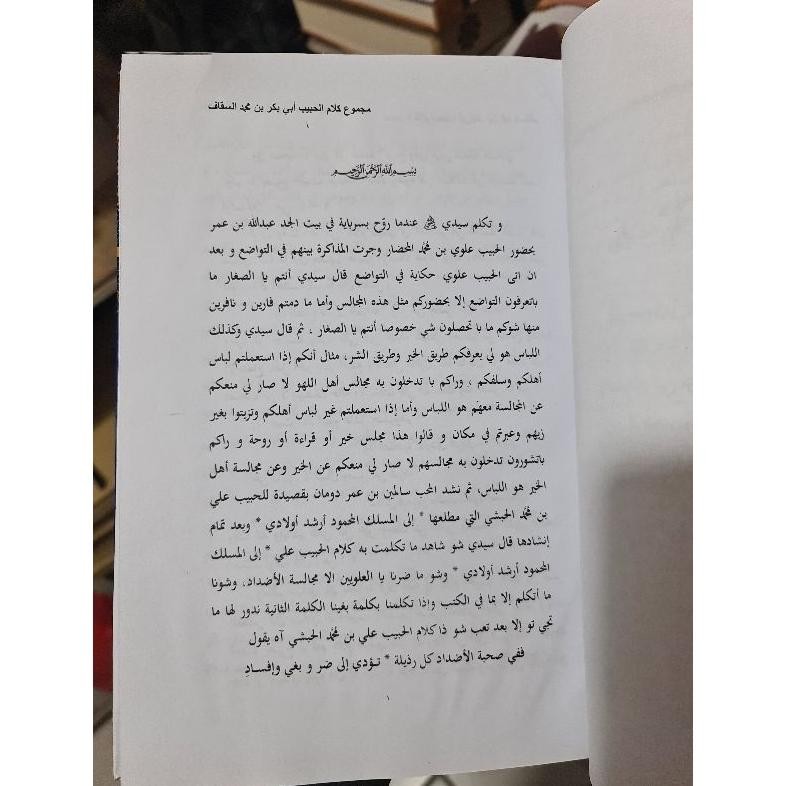 مجموع كلام الحبيب أبي بكر بن محمد السقاف
١
بسم الله الرحمن الرحيم
و تكلم سيدي عندما روّح بسرباية في بيت الجد عبدالله بن عمر
بحضور الحبيب علوي بن محمد المحضار وجرت المذاكرة بينهم في التواضع و بعد
ان اتى الحبيب علوي حكاية في التواضع قال سيدي أنتم يا الصغار ما
باتعرفون التواضع إلا بحضوركم مثل هذه المجالس وأما ما دمتم فارين و نافرين
منها شوكم ما با تحصلون شي خصوصا أنتم يا الصغار ، ثم قال سيدي وكذلك
اللباس هو لي يعرفكم طريق الخير وطريق الشر، مثال أنكم إذا استعملتم لباس
أهلكم وسلفكم ، وراكم با تدخلون به مجالس أهل اللهو لا صار لي منعكم
عن المجالسة معهم هو اللباس وأما إذا استعملتم غير لباس أهلكم وتزيتوا بغير
زيهم وعبرتم في مكان و قالوا هذا مجلس خير أو قراءة أو روحة و راكم
باتشورون تدخلون به مجالسهم لا صار لي منعكم عن الخير وعن مجالسة أهل
الخير هو اللباس، ثم نشد المحب سالمين بن عمر دومان بقصيدة للحبيب علي
بن محمد الحبشي التي مطلعها * إلى المسلك المحمود أرشد أولادي * وبعد تمام
إنشادها قال سيدي شو شاهد ما تكلمت به كلام الحبيب علي * إلى المسلك
المحمود أرشد أولادي * وشو ما ضرنا يا العلويين الا مجالسة الأضداد، وشونا
ما أتكلم إلا بما في الكتب وإذا تكلمنا بكلمة بغينا الكلمة الثانية ندور لها ما
تجي تو إلا بعد تعب شو ذا كلام الحبيب علي بن محمد الحبشي آه يقول
ففي صحبة الأضداد كل رذيلة * تؤدي إلى ضر و بغي وإفسادِ
١